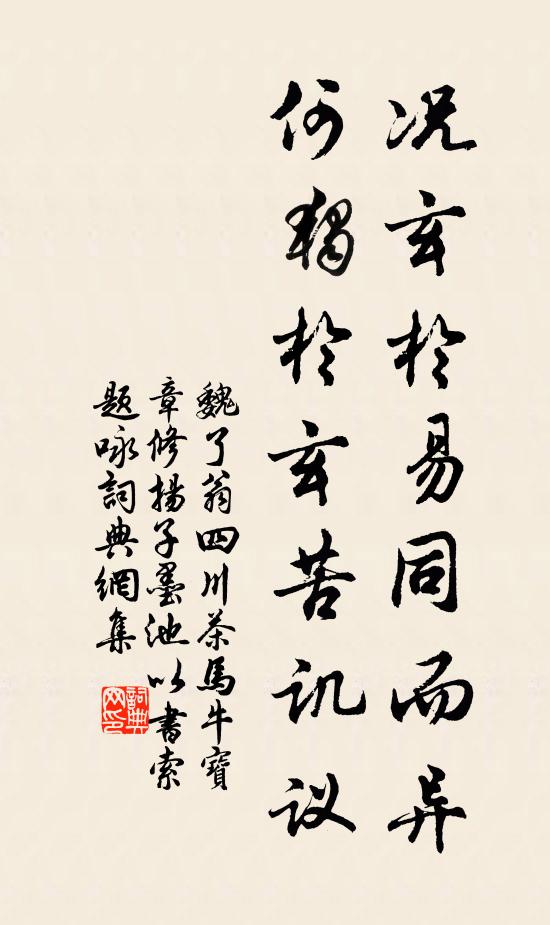 况玄於易同而异
何独於玄苦讥议
魏了翁四川茶馬牛寶
章修揚子墨池以書索
題咏詞典網集
詞典網印